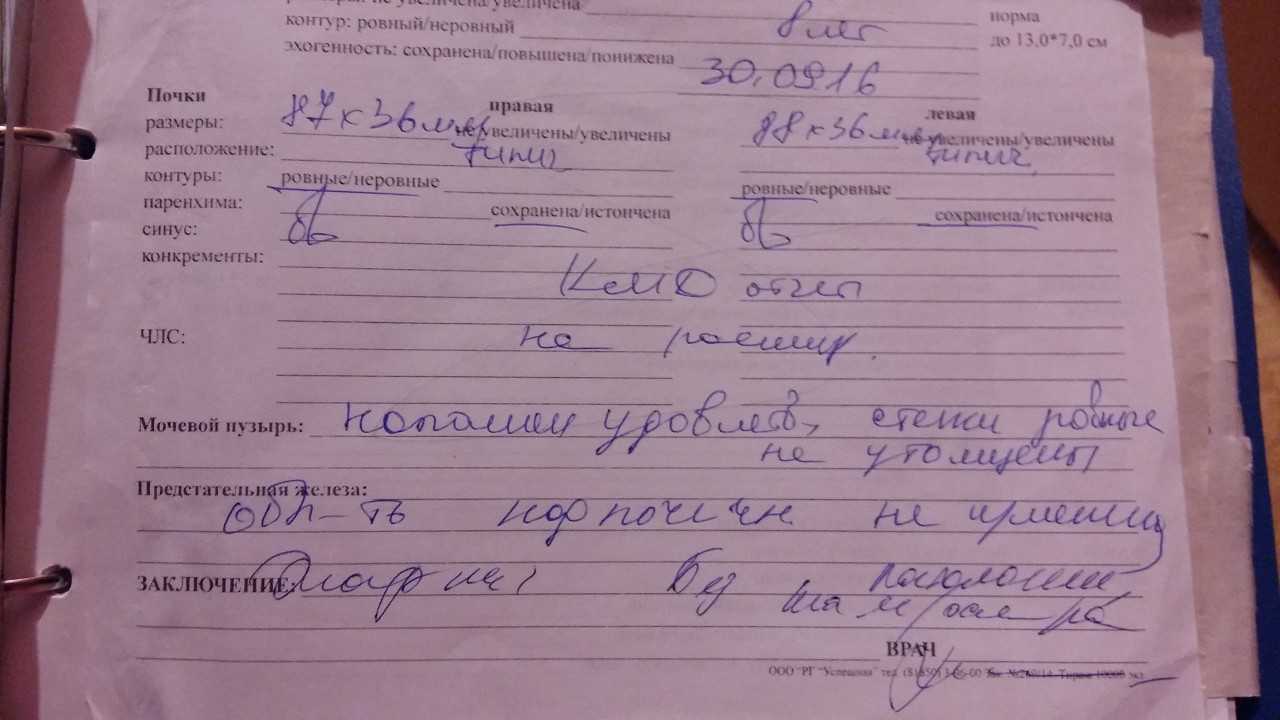 размеры: не увеличена/увеличена
контур: ровный/неровный 8 лет норма
эхогенность: сохранена/повышена/понижена до 13,0*7,0 см
30.09.16
Почки правая левая
размеры: 87 х 36 мм не увеличены/увеличены 88 х 36 мм не увеличены/увеличены
расположение: типич типич.
контуры: ровные/неровные ровные/неровные
паренхима: сохранена/истончена сохранена/истончена
синус:
конкременты:
КМД отчет
ЧЛС: не расшир.
Мочевой пузырь: удовлетв, стенки ровные
не утолщены
Предстательная железа:
обл-ть надпочечн не изменены
ЗАКЛЮЧЕНИЕ: Без патологии
на м/осмотра
ВРАЧ
ООО "РГ "Успешная" тел.